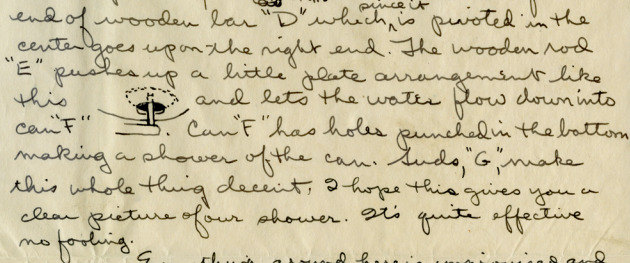 end of wooden bar "D" which, since it is pivoted in the
center goes upon the right end. The wooden rod
"E" pushes up a little plate arrangement like
this H and lets the water flow down into
can "F". Can "F" has holes punched in the bottom
making a shower of the can. Suds, "G", make
this whole thing decent. I hope this gives you a
clear picture of our shower. It's quite effective
no fooling.
around here is and